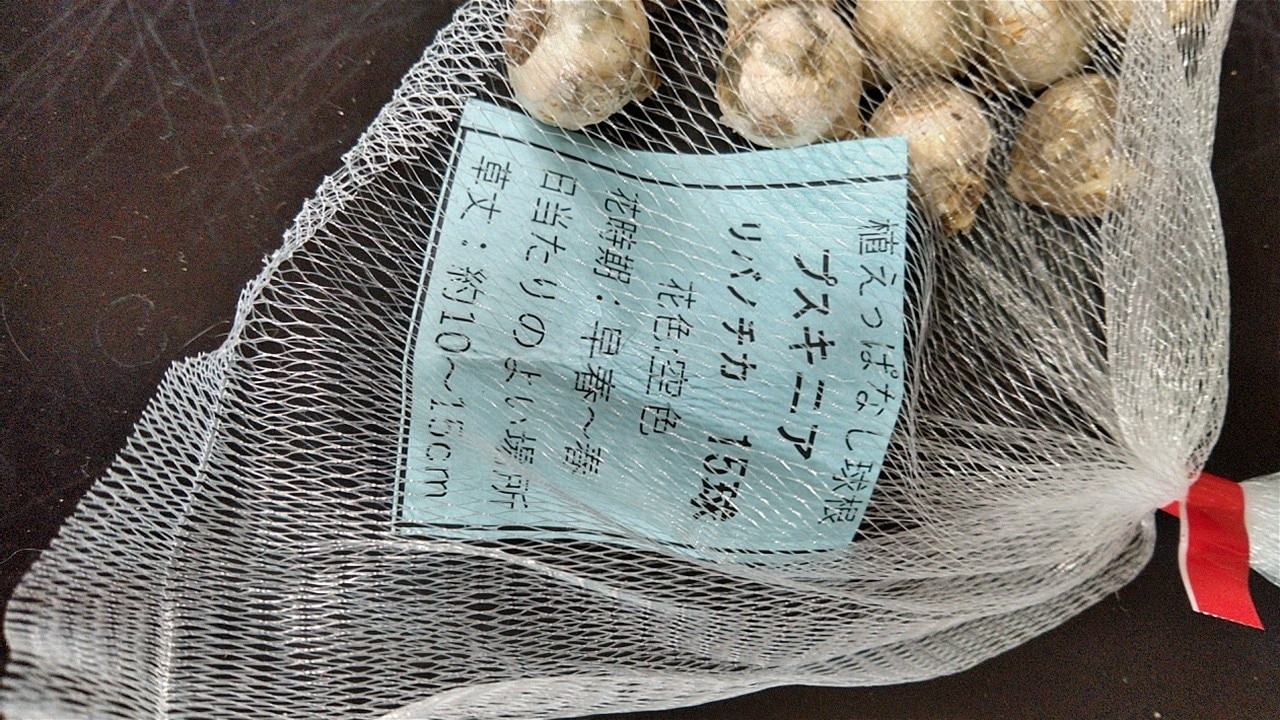 植えっぱなし球根
プスキニア
リバノチカ 15球
花色:空色
花時期:早春~春
日当たりのよい場所
草丈:約10~15cm